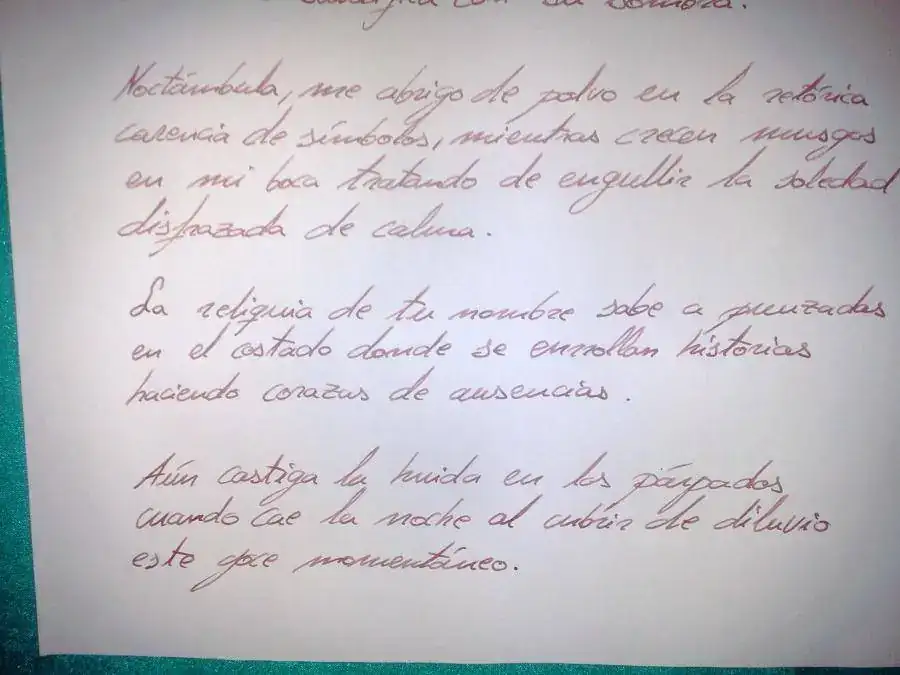 con su sombra.
Noctámbula, me abrigo de polvo en la retórica
carencia de símbolos, mientras crecen musgos
en mi boca tratando de engullir la soledad
disfrazada de calma.
La reliquia de tu nombre sabe a punzadas
en el costado donde se enrollan historias
haciendo corazas de ausencias.
Aún castiga la huida en los párpados
cuando cae la noche al cubrir de diluvio
este goce momentáneo.